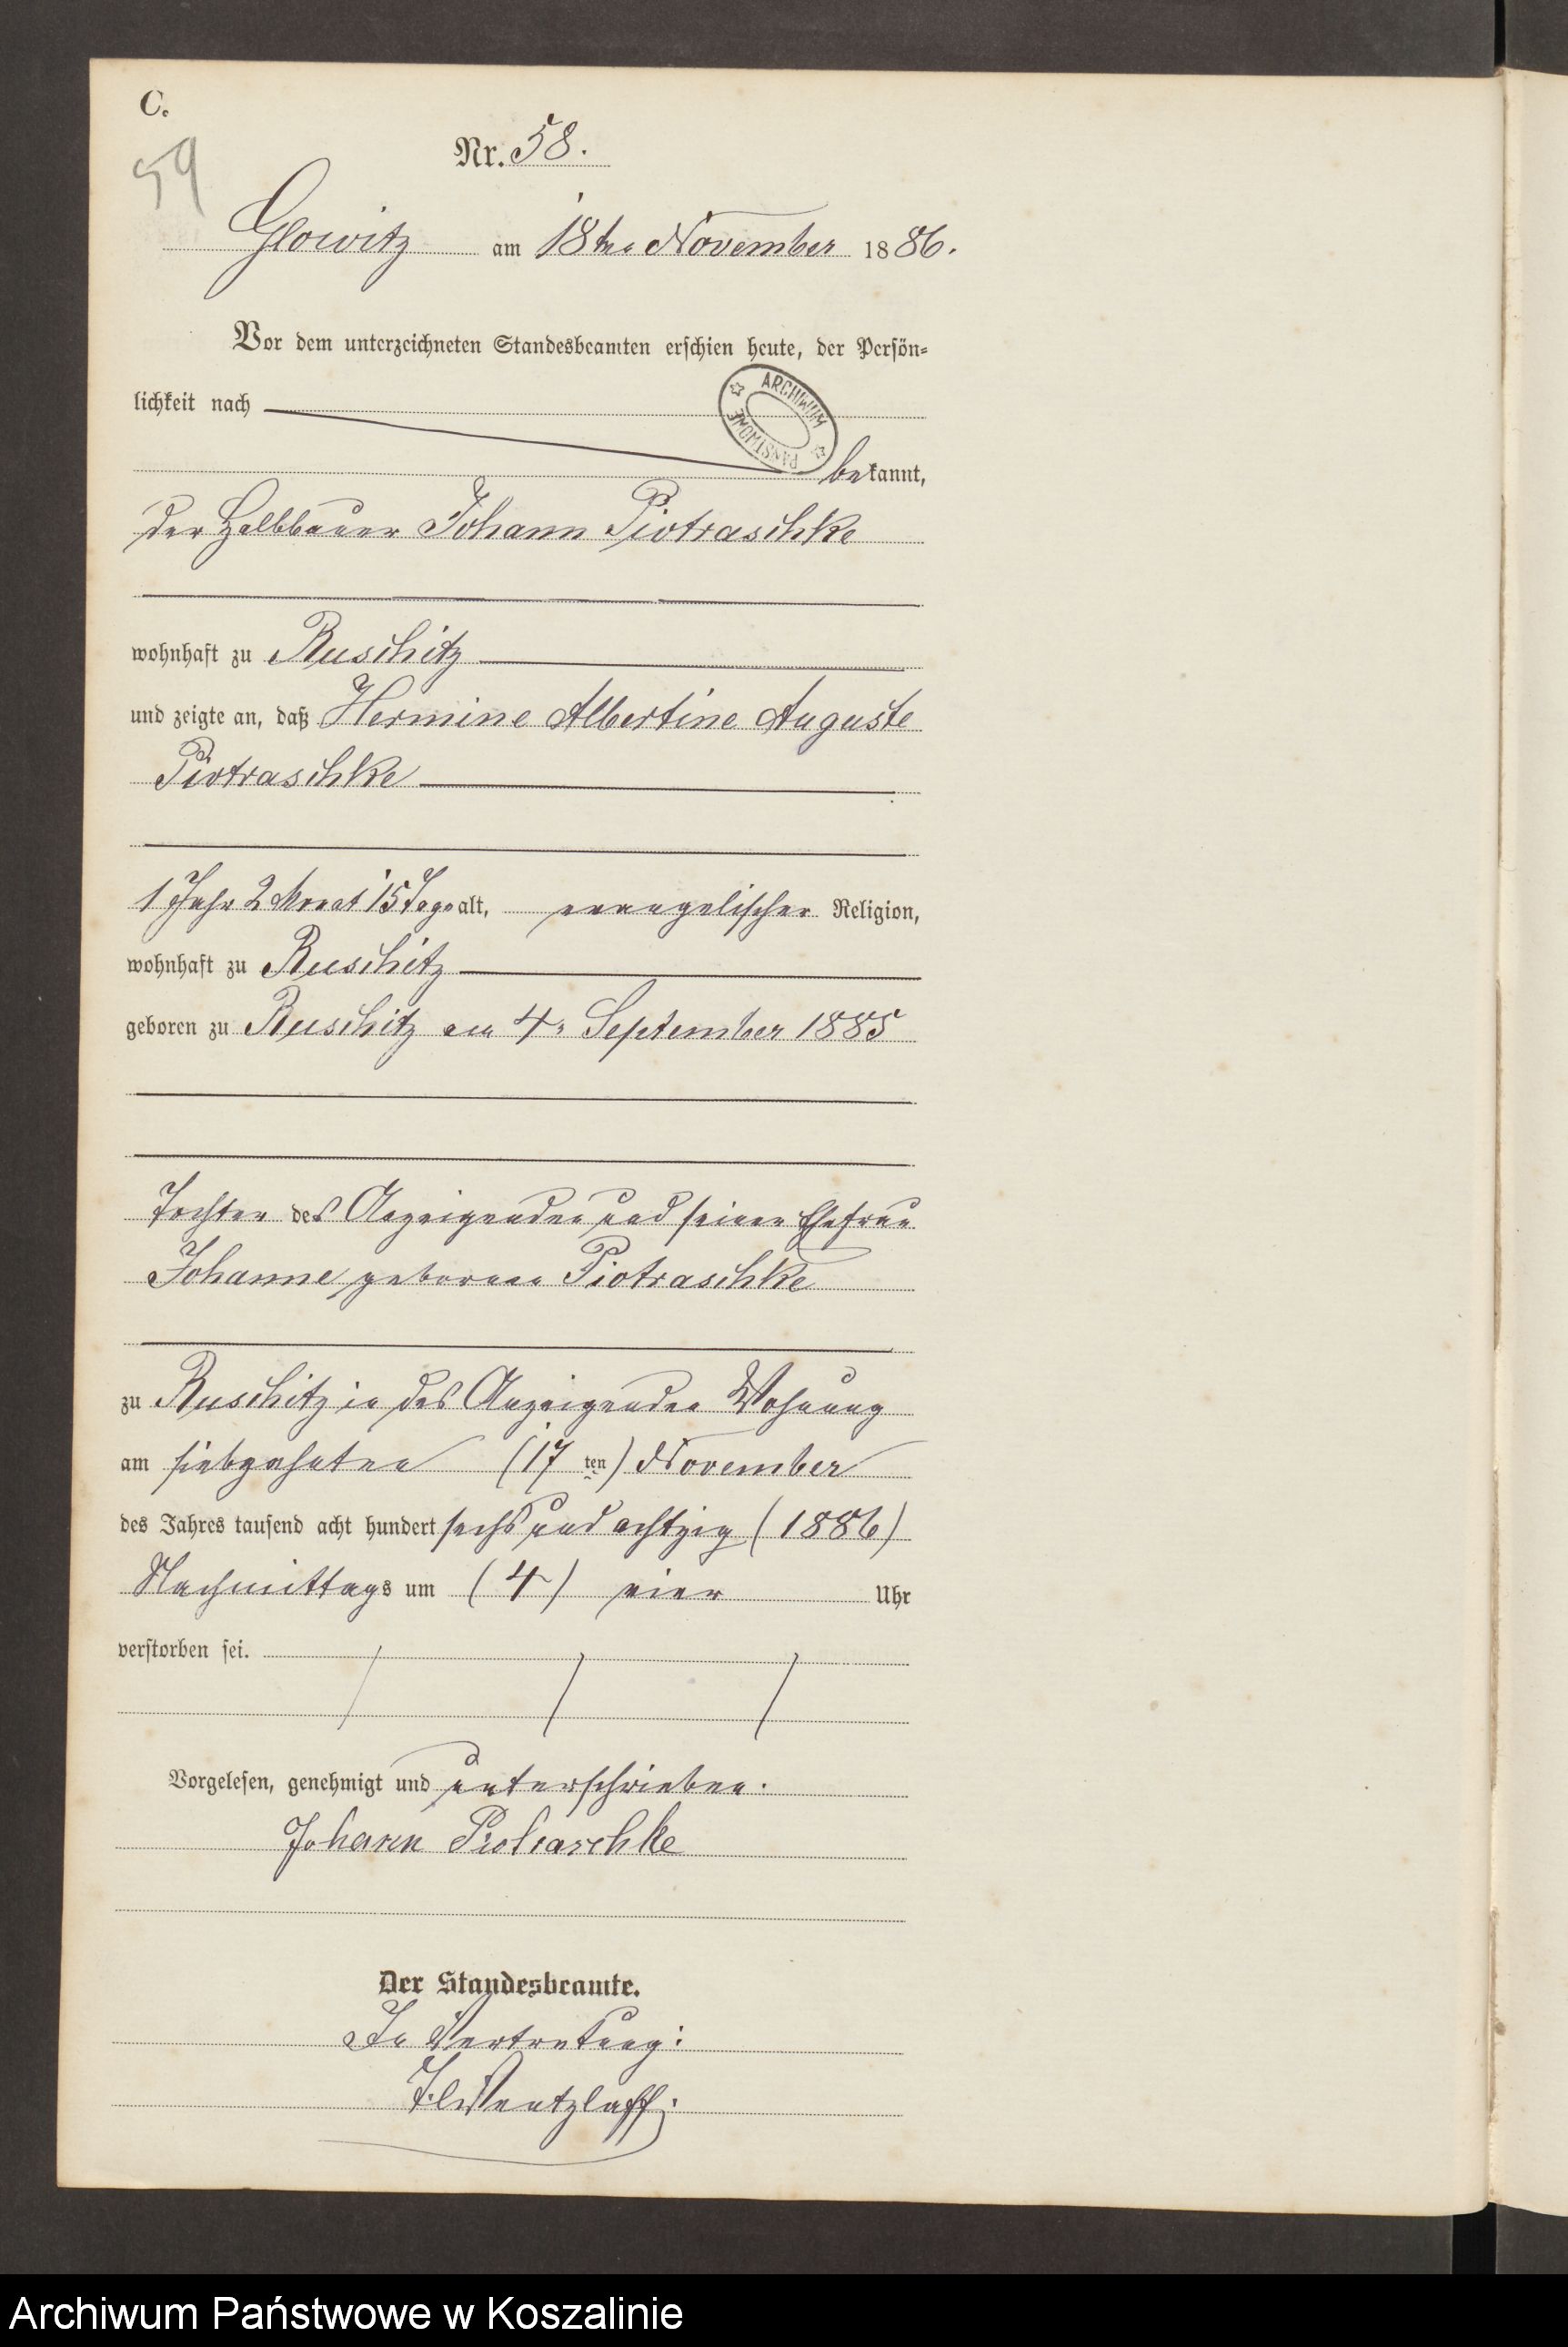 C.
59
Nr. 58.
Glowitz am 18ten November 1886.
Vor dem unterzeichneten Standesbeamten erschien heute, der Persön-
lichkeit nach
ARCHIWUM PAŃSTWOWE
bekannt,
der Halbbauer Johann Piotraschke
wohnhaft zu Ruschitz
und zeigte an, daß Hermine Albertine Auguste
Piotraschke
1 Jahr 2 Monat 15 Tage alt, evangelischer Religion,
wohnhaft zu Ruschitz
geboren zu Ruschitz am 4n September 1885
Tochter des Anzeigenden und seiner Ehefrau
Johanne geborenen Piotraschke
zu Ruschitz in des Anzeigenden Wohnung
am siebzehnten (17 ten) November
des Jahres tausend acht hundert sechs und achtzig (1886)
Nachmittags um (4) vier Uhr
verstorben sei.
Vorgelesen, genehmigt und unterschrieben.
Johann Piotraschke
Der Standesbeamte.
In Vertretung:
Wentzlaff.
Archiwum Państwowe w Koszalinie